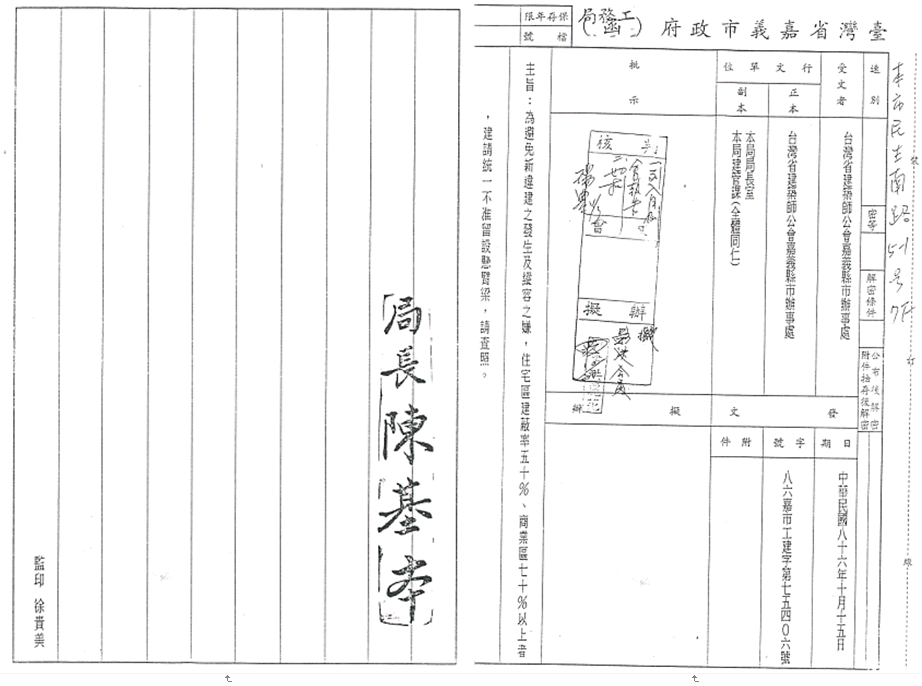 臺灣省嘉義市政府
工務局
(函)
保存年限
檔號
本市民生南路51号7F
裝
訂
線
速別
密等
解密條件
公布後解密
附件抽存後解密
受文者
台灣省建築師公會嘉義縣市辦事處
行文單位
正本
台灣省建築師公會嘉義縣市辦事處
副本
本局局長室
本局建管課(全體同仁)
發文
日期
中華民國八十六年十月十五日
字號
八六嘉市工建字第七五四0六號
附件
批示
擬辦
判
核
擬
辦
主旨：為避免新違建之發生及縱容之嫌，住宅區建蔽率五十%、商業區七十%以上者
，建請統一不准留設懸臂梁，請查照。
局長陳基本
監印 徐貴美